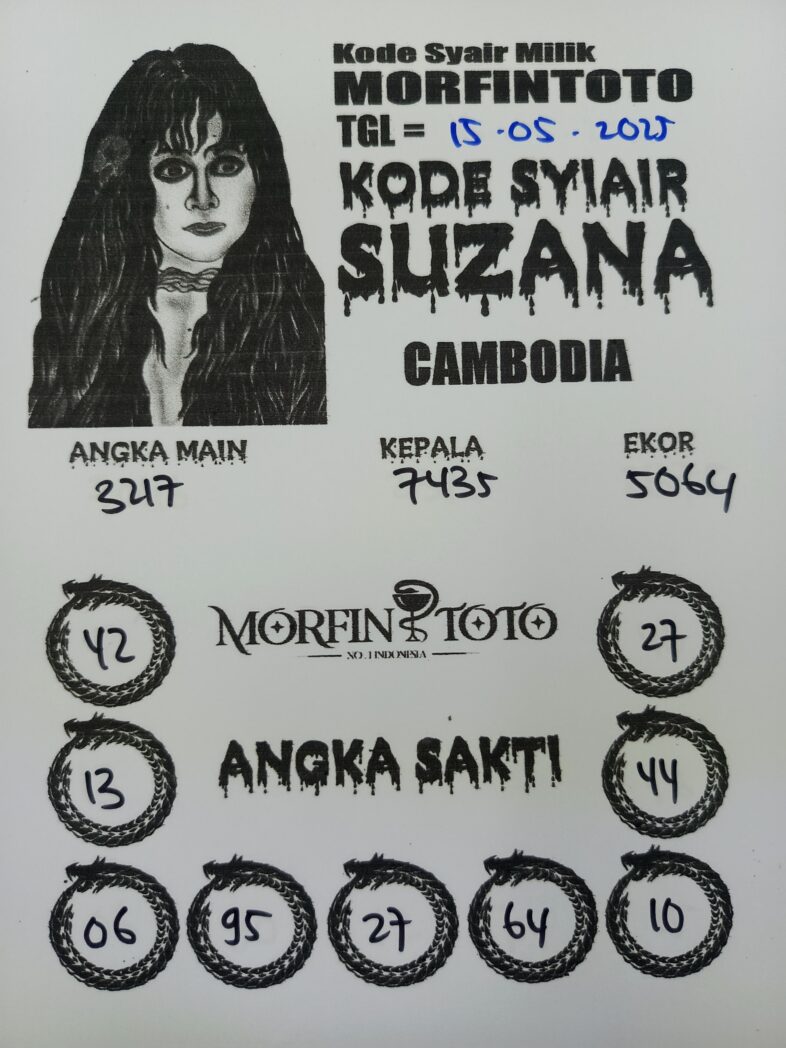 Kode Syair Milik
MORFINTOTO
TGL = 15.05.2025
KODE SYIAIR
SUZANA
CAMBODIA
ANGKA MAIN KEPALA EKOR
3217 7435 5064
42 MORFIN TOTO 27
NO.1 INDONESIA
13 ANGKA SAKTI 44
06 95 27 64 10